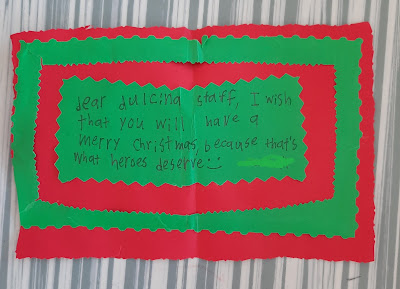 dear dulcina staff, I wish
that you will have a
merry Christmas, because that's
what heroes deserve :)